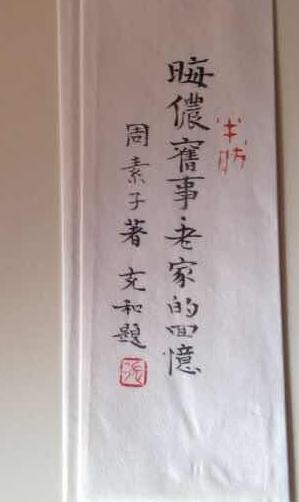 晦儂舊事老家的回憶
周素子著
充和題
張